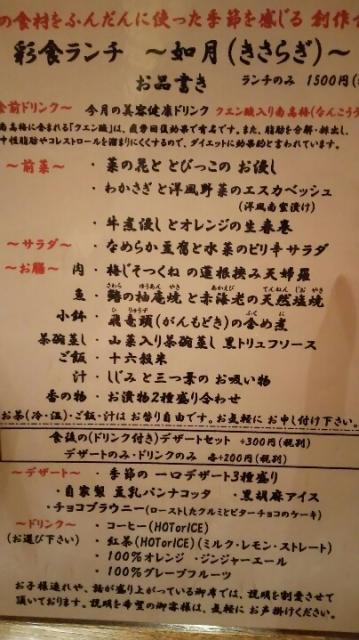 の食材をふんだんに使った季節を感じる 創作
彩食ランチ ～如月(きさらぎ)～
お品書き ランチのみ 1500円
食前ドリンク～ 今月の美容健康ドリンク クエン酸入り南高梅(なんこう
南高梅に含まれる「クエン酸」は、疲労回復効果で有名です。また、脂肪を分解・排出し、
中性脂肪やコレストロールを溜まりにくくするので、ダイエットに効果的と言われています。
～前菜～ ・ 菜の花と とびっこの お浸し
・ わかさぎと洋風野菜のエスカベッシュ
(洋風南蛮漬け)
・ 牛煮浸しとオレンジの生春巻
～サラダ～ ・ なめらか豆腐と水菜のピリ辛サラダ
～お膳～ 肉 ・ 梅じそつくね の 蓮根挟み天婦羅
魚 ・ 鰆の柚庵焼 と 赤海老の天然塩焼
小鉢 ・ 飛竜頭(がんもどき)の含め煮
茶碗蒸し ・ 山菜入り茶碗蒸し 黒トリュフソース
ご飯 ・ 十六穀米
汁 ・ しじみ と三つ葉の お吸い物
香の物 ・ お漬物2種盛り合わせ
お茶(冷・温)・ご飯・汁は お替り自由です。お気軽に お申し付け下さい。
食後の(ドリンク付き)デザートセット +300円(税別)
デザートのみ・ドリンクのみ 各+200円(税別)
～デザート～ ・ 季節の 一口デザート3種盛り
・自家製 豆乳パンナコッタ ・黒胡麻アイス
・チョコブラウニー(ローストしたクルミとビターチョコのケーキ)
～ドリンク～ ・ コーヒー(HOTorICE)
(お選び下さい) ・ 紅茶(HOTorICE)(ミルク・レモン・ストレート)
・ 100%オレンジ ・ジンジャーエール
・ 100%グレープフルーツ
お子様連れや、話が盛り上がっているお席では、説明を割愛させて
頂いております。説明を希望のお客様は、気軽に お声掛けください。